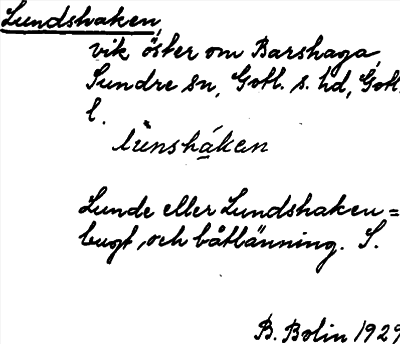 Lundshaken
vik öster om Barshaga,
Sundre sn, Gotl. s. hd, Gotl.
l.
lùnshákan
Lunde eller Lundshaken =
bugt, och båtlänning. S.
B. Bolin 1929